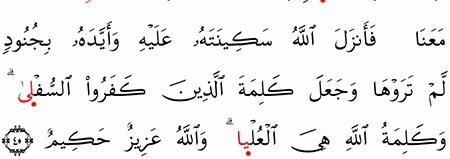 مَعَنَا فَأَنزَلَ ٱللَّهُ سَكِينَتَهُۥ عَلَيْهِ وَأَيَّدَهُۥ بِجُنُودٍ
لَّمْ تَرَوْهَا وَجَعَلَ كَلِمَةَ ٱلَّذِينَ كَفَرُوا۟ ٱلسُّفْلَىٰ ۗ
وَكَلِمَةُ ٱللَّهِ هِىَ ٱلْعُلْيَا ۗ وَٱللَّهُ عَزِيزٌ حَكِيمٌ ﴿٤٠﴾